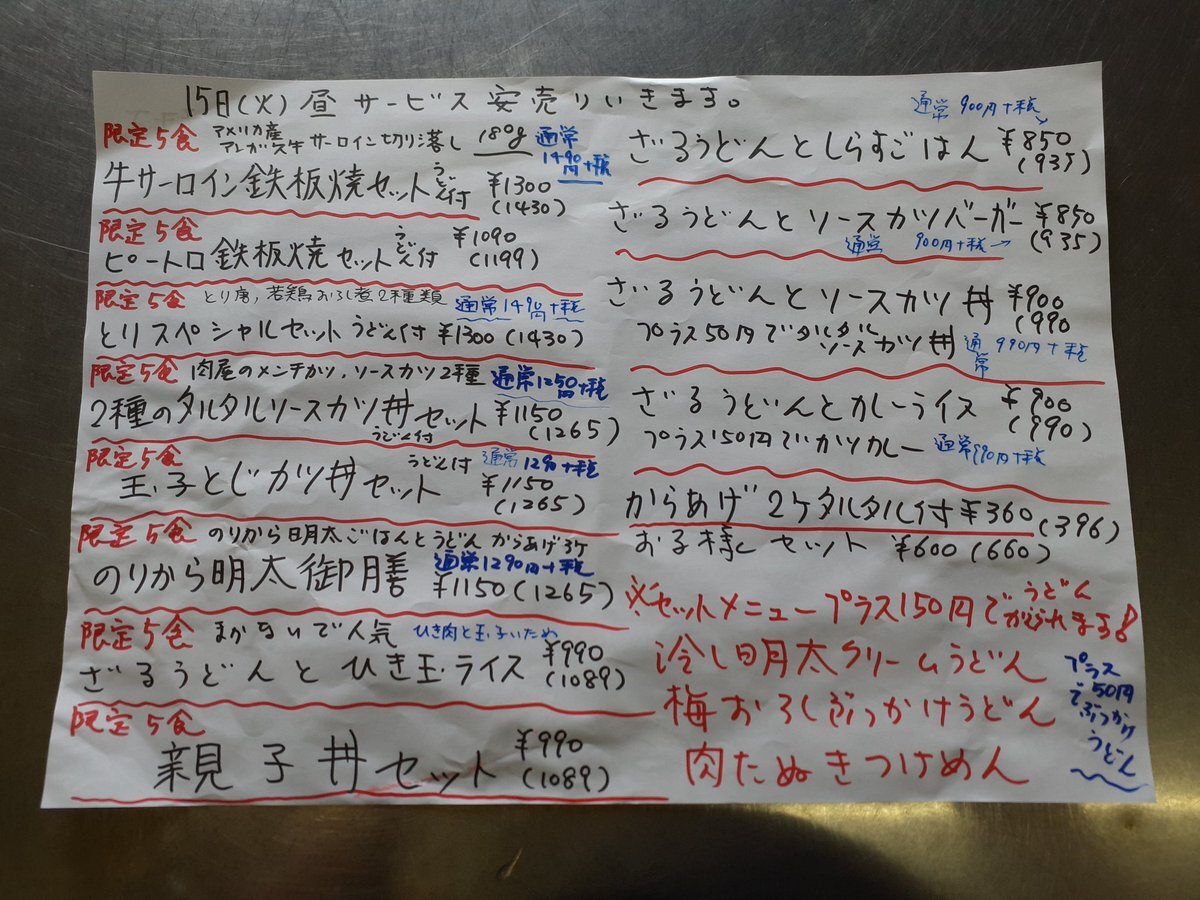 15日(火)昼サービス安売りいきます。
限定5食 アメリカ産 アンガス牛サーロイン切り落し 180g 通常1490円+税
牛サーロイン鉄板焼セット うどん付 ¥1300 (1430)
限定5食
ピートロ鉄板焼セット うどん付 ¥1090 (1199)
限定5食 とり唐,若鶏おろし煮2種類 通常1490円+税
とりスペシャルセット うどん付 ¥1300(1430)
限定5食 肉屋のメンチカツ,ソースカツ2種 通常1250円+税
2種のタルタルソースカツ丼セット うどん付 ¥1150 (1265)
限定5食 うどん付 通常1290+税
玉子とじカツ丼セット ¥1150 (1265)
限定5食 のりから明太ごはんとうどん からあげ3ケ
のりから明太御膳 通常1290円+税 ¥1150(1265)
限定5食 まかないで人気 ひき肉と玉子いため
ざるうどんと ひき玉ライス ¥990 (1089)
限定5食
親子丼セット ¥990 (1089)
通常900円+税
ざるうどんとしらすごはん ¥850 (935)
ざるうどんと ソースカツバーガー ¥850 (935)
通常 900円+税→
ざるうどんと ソースカツ丼 ¥900 (990
プラス50円でタルタルソースカツ丼 通常 990円+税
ざるうどんとカレーライス ¥900 (990)
プラス150円でカツカレー 通常990円+税
からあげ 2ケタルタル付 ¥360 (396)
お子様セット ¥600(660)
※セットメニュープラス150円で うどん かえられます。
冷し明太クリームうどん
梅おろしぶっかけうどん
肉たぬきつけめん
プラス50円でぶっかけうどん